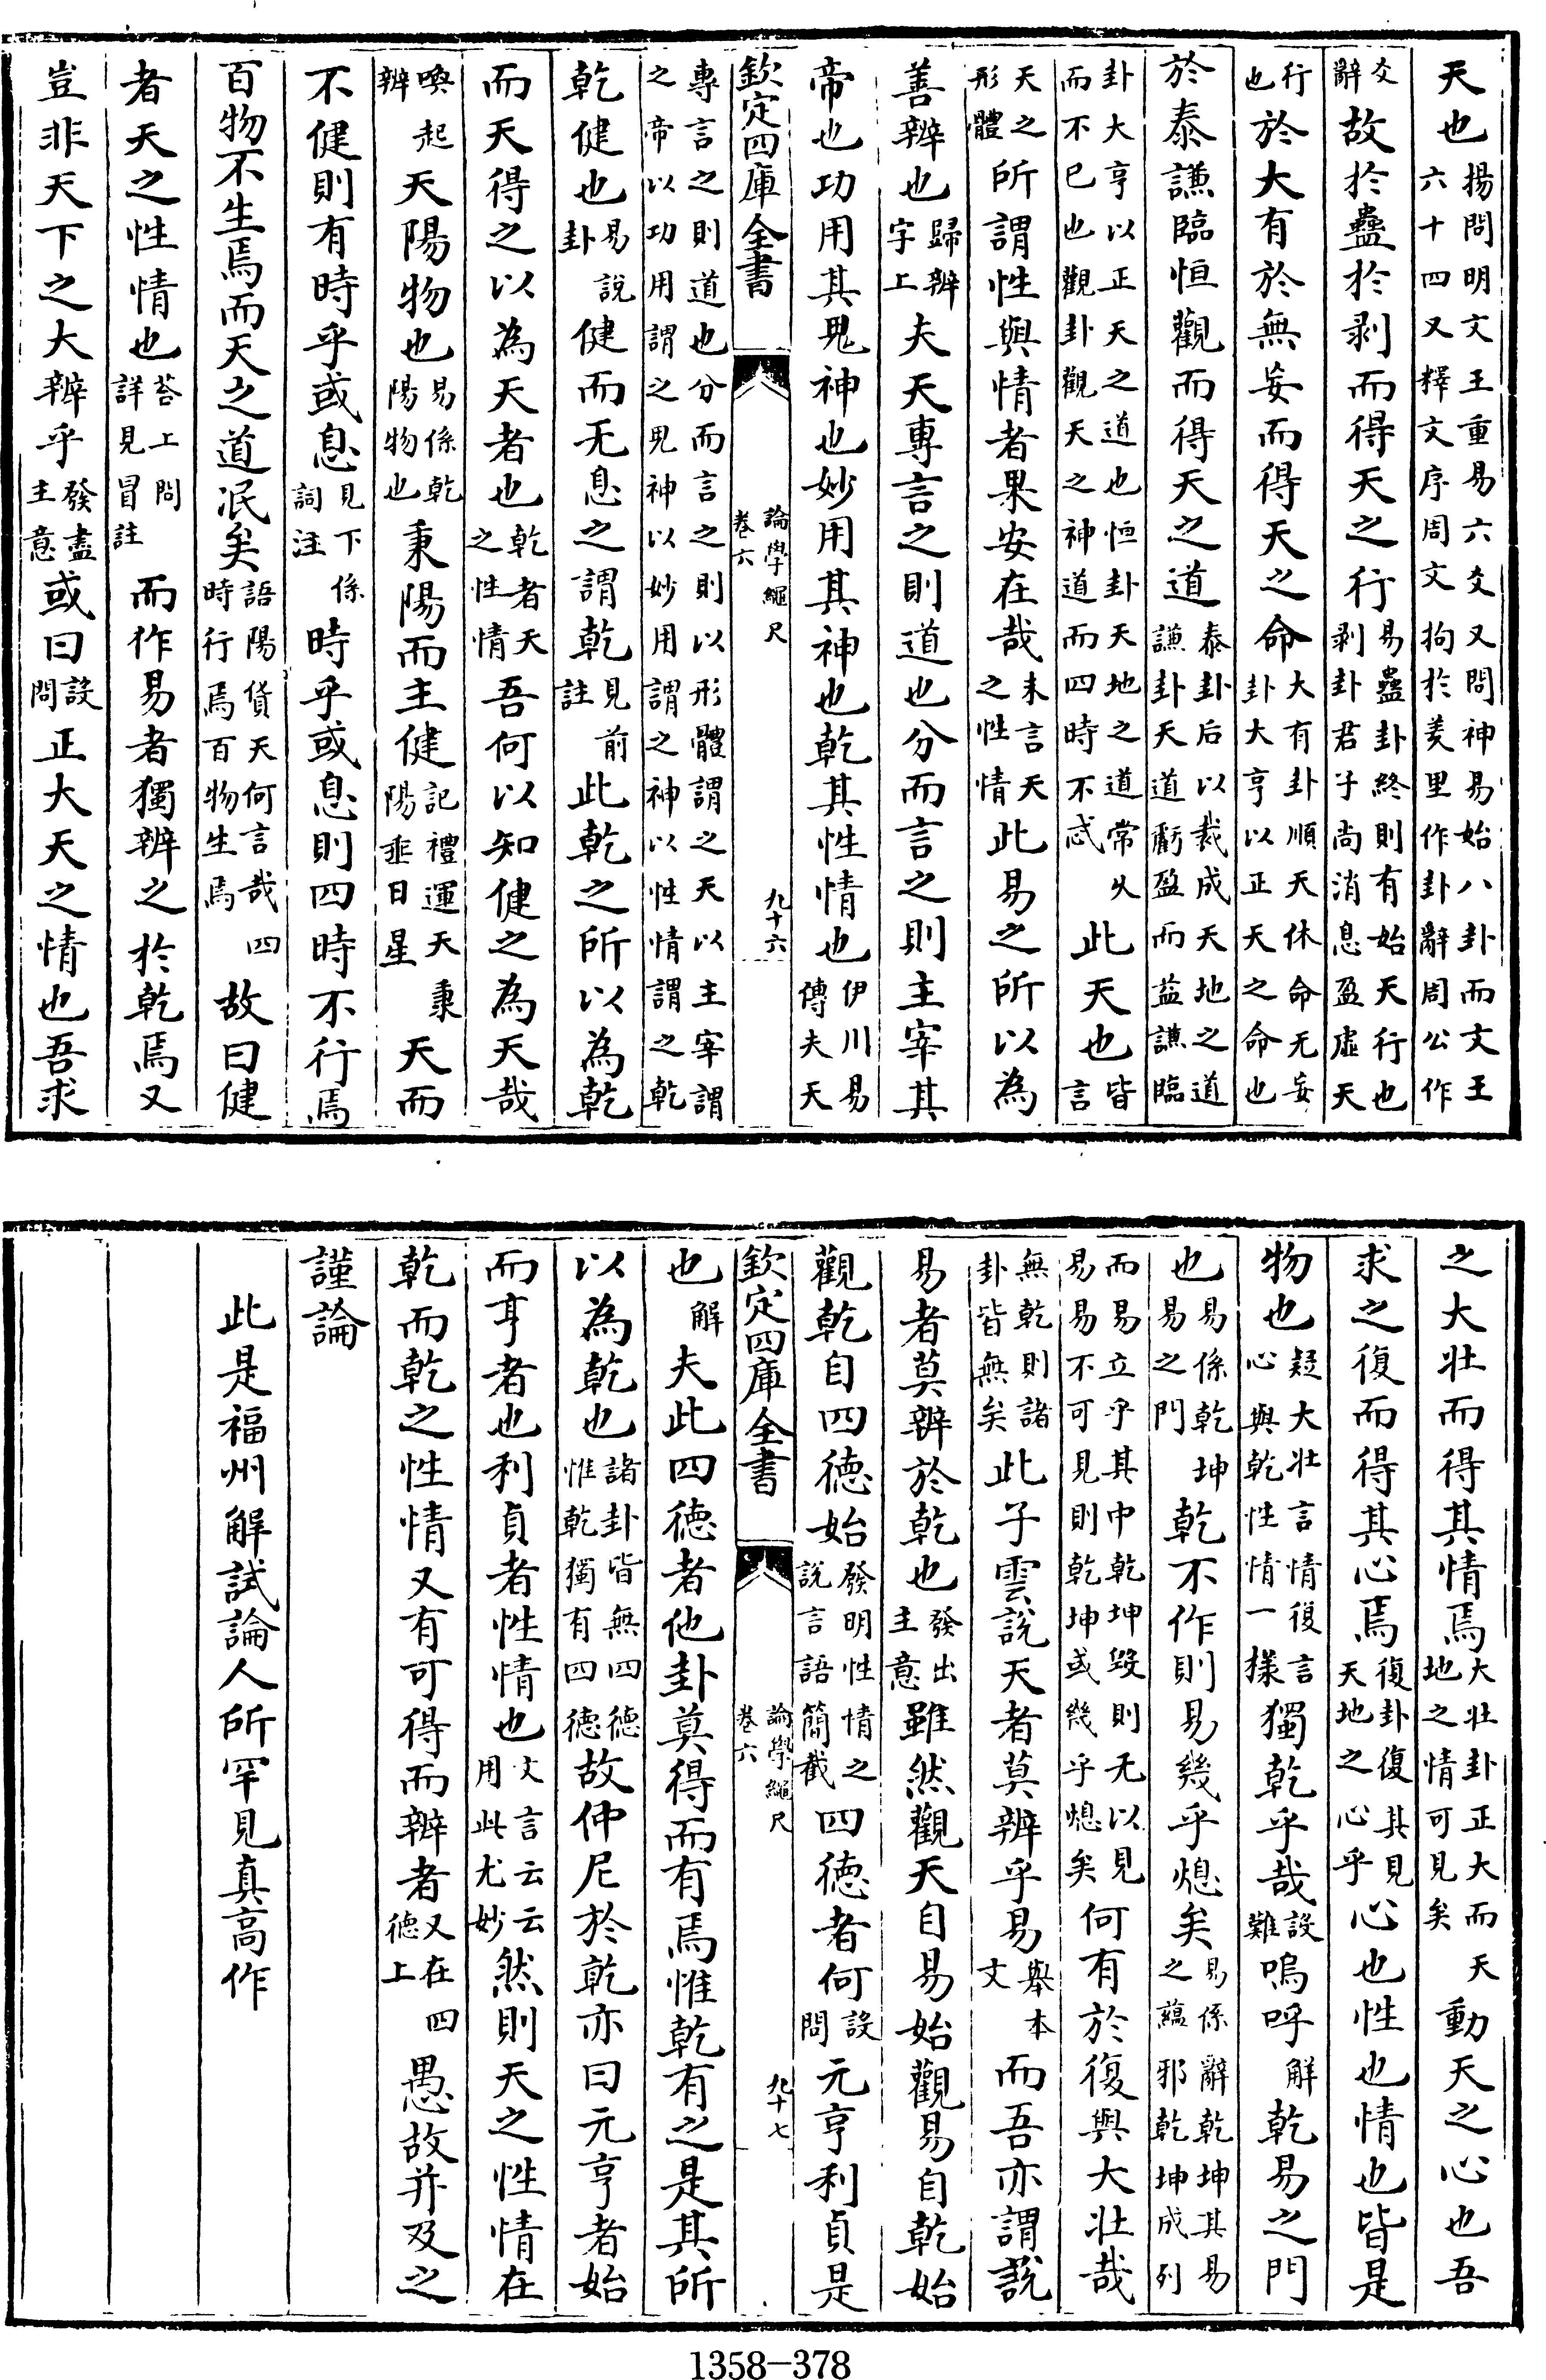 天也揚問明文王重易六爻又問神易始八卦而文王六十四又釋文序周文拘於羑里作卦辭周公作
爻辭故於蠱於剥而得天之行易蠱卦終則有始天行也剥卦君子尚消息盈虛天
行也於大有於無妄而得天之命大有卦順天休命无妄卦大亨以正天之命也
於泰謙臨恒觀而得天之道泰卦后以裁成天地之道謙卦天道虧盈而益謙臨
卦大亨以正天之道也恒卦天地之道常久而不已也觀卦觀天之神道而四時不忒此天也皆言
天之形體所謂性與情者果安在哉未言天之性情此易之所以為
善辨也歸辨字上夫天專言之則道也分而言之則主宰其
帝也功用其鬼神也妙用其神也乾其性情也伊川易傳夫天
欽定四庫全書 論學繩尺 卷六 九十六
專言之則道也分而言之則以形體謂之天以主宰謂之帝以功用謂之鬼神以妙用謂之神以性情謂之乾
乾健也易說卦健而无息之謂乾見前註此乾之所以為乾
而天得之以為天者也乾者天之性情吾何以知健之為天哉
喚起辨天陽物也易係乾陽物也秉陽而主健記禮運天秉陽垂日星天而
不健則有時乎或息見下係詞注時乎或息則四時不行焉
百物不生焉而天之道泯矣語陽貨天何言哉四時行焉百物生焉故曰健
者天之性情也荅上問詳見冒註而作易者獨辨之於乾焉又
豈非天下之大辨乎發盡主意或曰設問正大天之情也吾求
之大壯而得其情焉大壯卦正大而天地之情可見矣動天之心也吾
求之復而得其心焉復卦復其見天地之心乎心也性也情也皆是
物也疑大壯言情復言心與乾性情一樣獨乾乎哉設難嗚呼解乾易之門
也易係乾坤易之門乾不作則易幾乎熄矣易係辭乾坤其易之蘊邪乾坤成列
而易立乎其中乾坤毁則无以見易易不可見則乾坤或幾乎熄矣何有於復與大壯哉
無乾則諸卦皆無矣此子雲說天者莫辨乎易舉本文而吾亦謂說
易者莫辨於乾也發出主意雖然觀天自易始觀易自乾始
觀乾自四德始發明性情之說言語簡截四德者何設問元亨利貞是
欽定四庫全書 論學繩尺 卷六 九十七
也解夫此四德者他卦莫得而有焉惟乾有之是其所
以為乾也諸卦皆無四德惟乾獨有四德故仲尼於乾亦曰元亨者始
而亨者也利貞者性情也文言云云用此尤妙然則天之性情在
乾而乾之性情又有可得而辨者又在四德上愚故并及之
謹論
此是福州解試論人所罕見真高作
1358-378